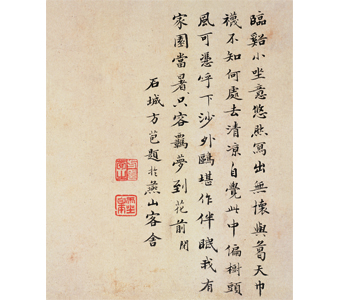 臨谿小坐意悠然寫出無懷與葛天巾
襪不知何處去清凉自覺此中偏樹頭
風可憑呼下沙外鷗堪作伴眠我有
家園當暑只容羈夢到花前閒
石城方芑題於燕山客舍